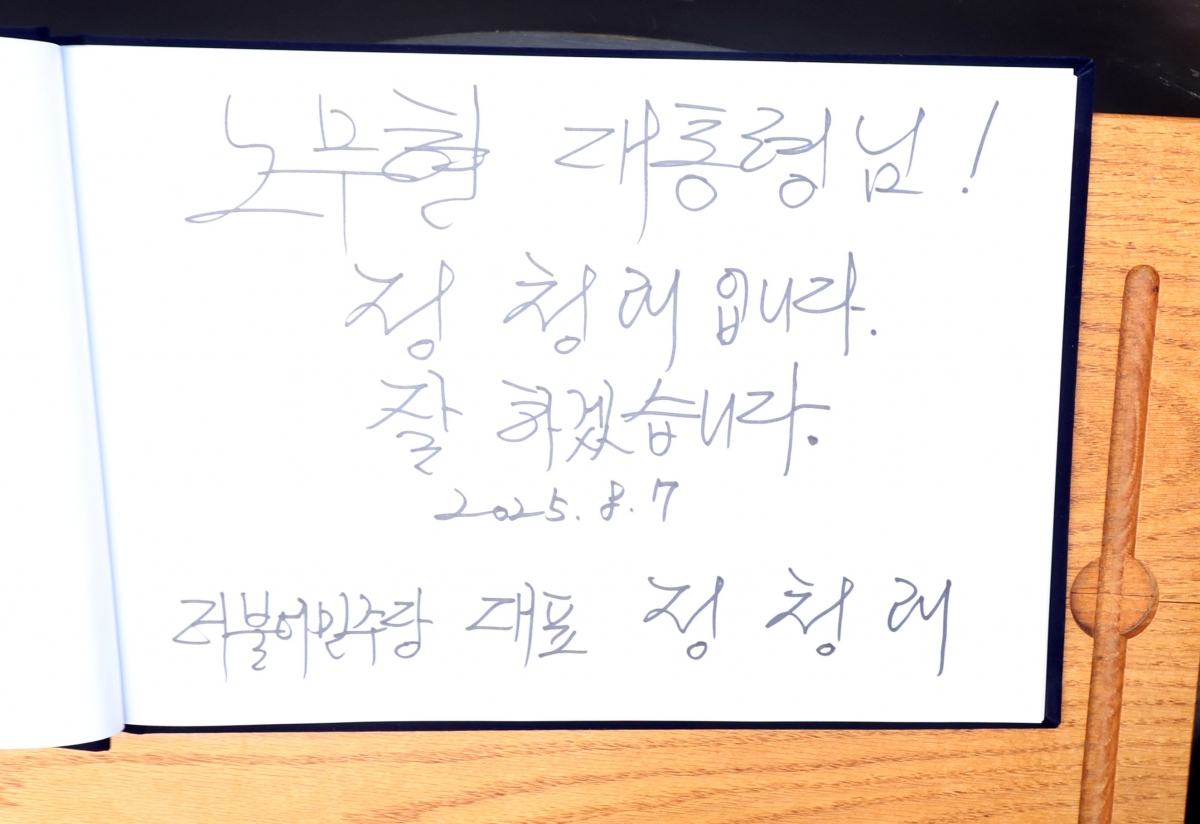 노무현 대통령님!
정청래입니다.
잘 하겠습니다.
2025. 8. 7
더불어민주당 대표 정청래